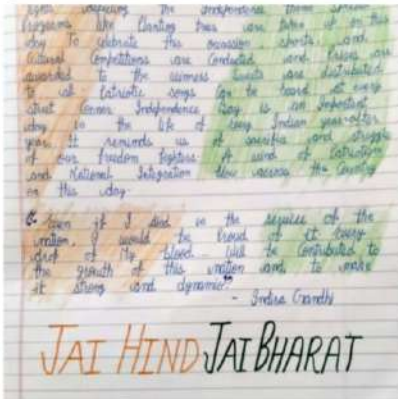 the Independence
Programs like Planting trees are taken up on this
day To celebrate this occassion, sports and
Cultural Competitions are Conducted and Prizes are
awarded to the winners Sweets are distributed
to all Patriotic songs Can be heard at every
street Corner Independence Day is an Important
day in the life of every Indian year after
year. It reminds us of sacrifice and struggle
of our freedom fighters. A wind of Patriotism
and National Integration blow across the Country
on this day.
Even if I died in the service of the
nation, I would be Proud of it Every
drop of My blood will be Contributed to
the growth of this nation and to make
it strong and dynamic."
- Indira Gandhi
JAI HIND JAI BHARAT